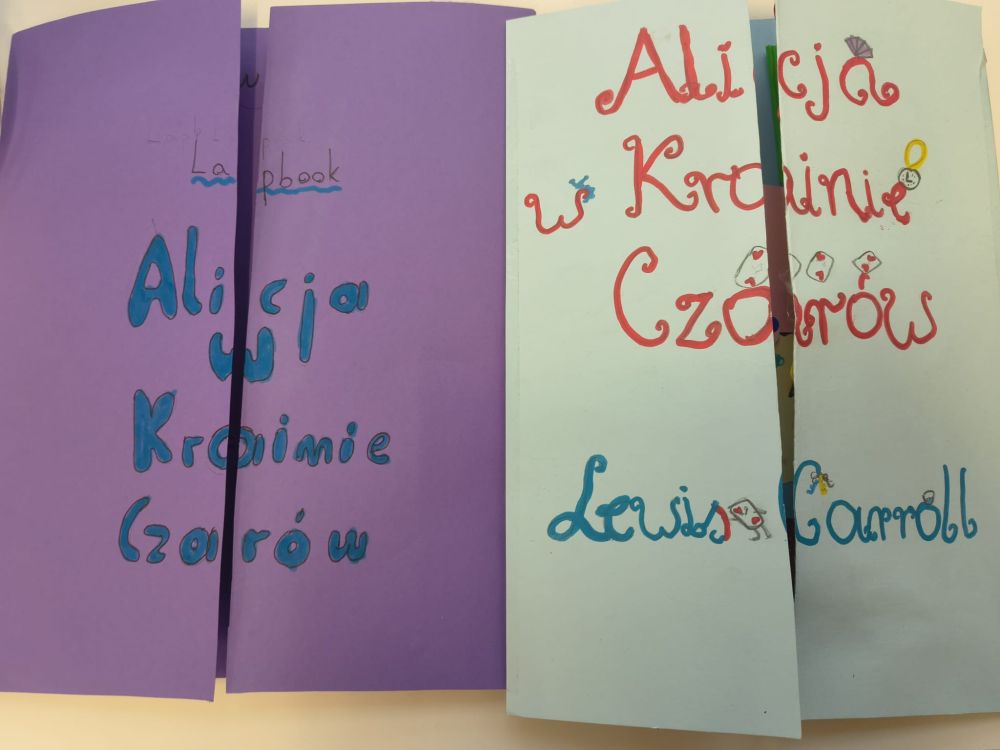 Lapbook
Alicja
w
Krainie
Czarów
Alicja
w Krainie
Czarów
Lewis Carroll